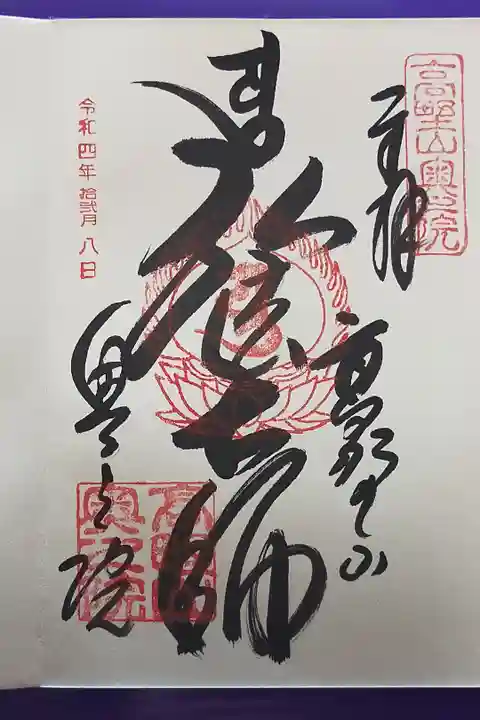 高野山奥之院
奉拝
高野山
弘法大師
奥之院
令和四年拾弐月八日
高野山
奥之院